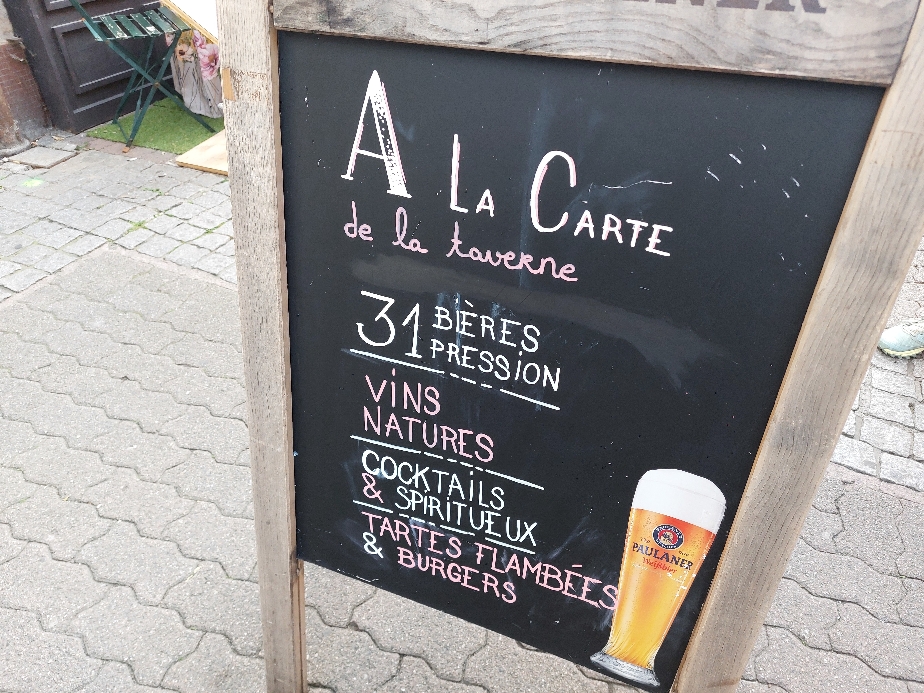 A LA CARTE
de la taverne
31 BIÈRES
PRESSION
VINS
NATURES
COCKTAILS
& SPIRITUEUX
TARTES FLAMBÉES
& BURGERS
PAULANER
Weißbier